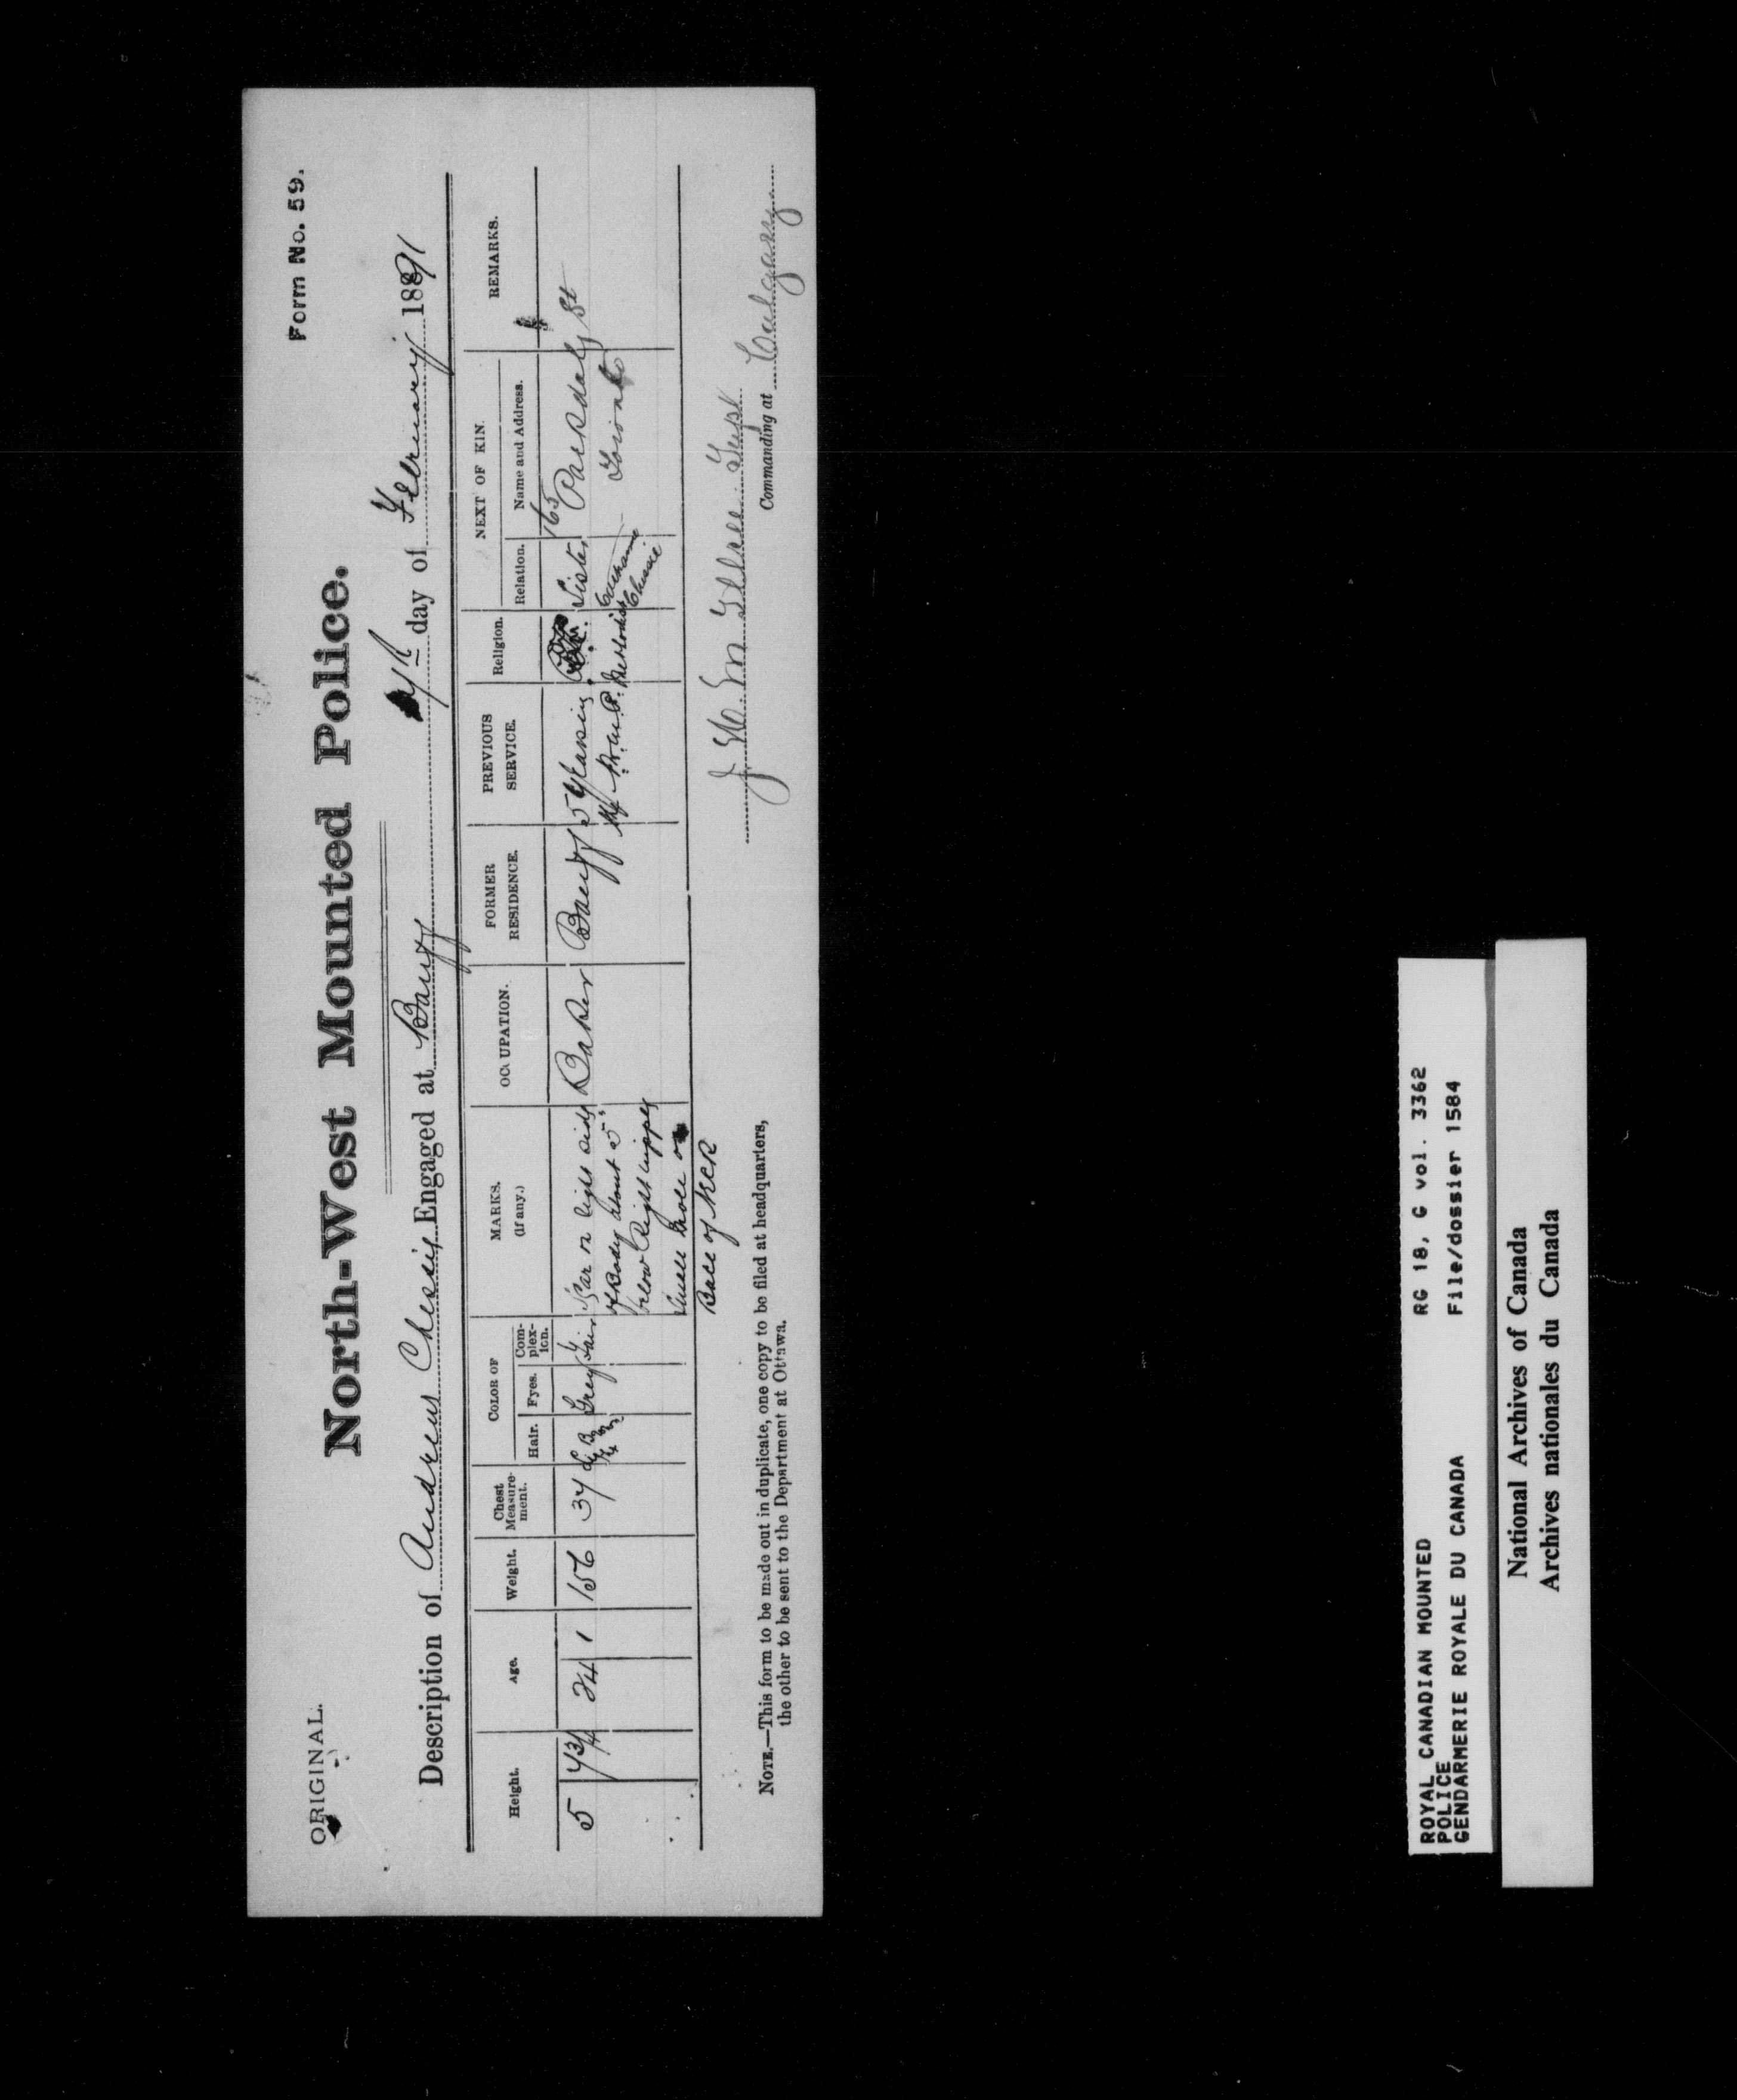 ORIGINAL.
Form No. 59.
North-West Mounted Police.
Description of Andrew Chessie Engaged at Banff 7th day of February 1891
Height.
Age.
Weight.
Chest Measure-ment.
COLOR OF
Hair.
Eyes.
Com-plex-ion.
MARKS.
(If any.)
OCCUPATION.
FORMER RESIDENCE.
PREVIOUS SERVICE.
Religion.
NEXT OF KIN.
Relation.
Name and Address.
REMARKS.
5 7 3/4
24 1
156
37
Grey
Fair
Scar on right side
of Body about 5"
below right nipple
Small mole on
Base of Neck
Baker
Banff
5 years in
N.W.M.P.
Methodist
Sister
Chessie
165
Parkdale St
Toronto
Supt
Commanding at Calgary
NOTE.—This form to be made out in duplicate, one copy to be filed at headquarters,
the other to be sent to the Department at Ottawa.
ROYAL CANADIAN MOUNTED
POLICE
GENDARMERIE ROYALE DU CANADA
RG 18, G vol. 3362
File/dossier 1584
National Archives of Canada
Archives nationales du Canada